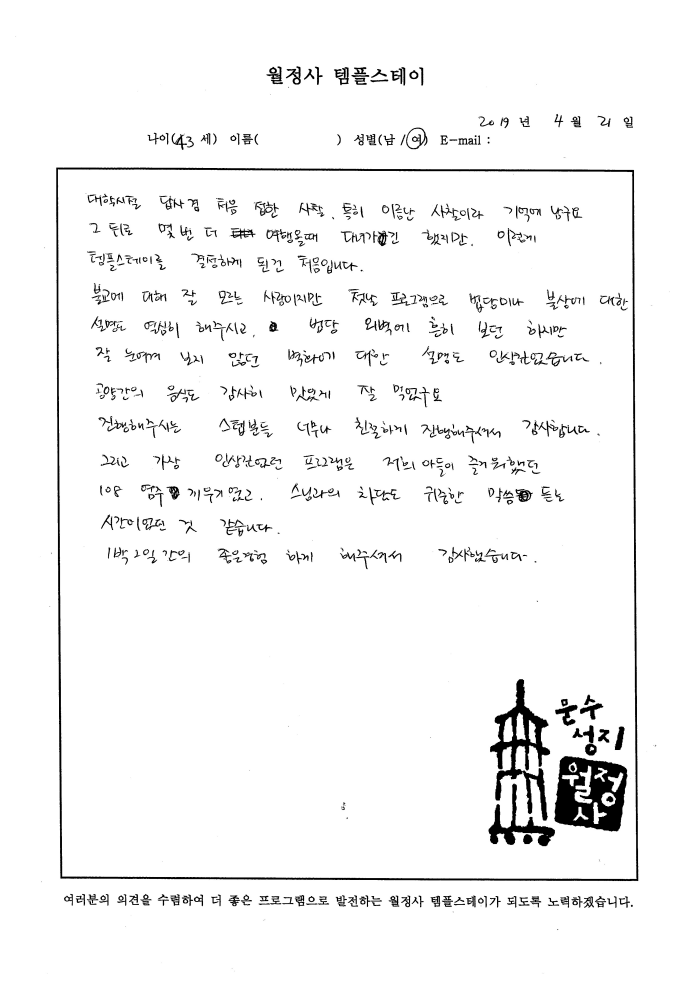 월정사 템플스테이
2019 년 4 월 21 일
나이(43 세) 이름( ) 성별(남 /여) E-mail :
대학시절 답사겸 처음 접한 사찰, 특히 이름난 사찰이라 기억에 남구요
그 뒤로 몇 번 더 여행올때 다녀가긴 했지만, 이렇게
템플스테이를 결정하게 된건 처음입니다.
불교에 대해 잘 모르는 사람이지만 첫날 프로그램으로 법당이나 불상에 대한
설명도 열심히 해주시고, 법당 외벽에 흔히 보던 하지만
잘 눈여겨 보지 않던 벽화에 대한 설명도 인상깊었습니다.
공양간의 음식도 감사히 맛있게 잘 먹었구요
진행해주시는 스텝분들 너무나 친절하게 진행해주셔서 감사합니다.
그리고 가장 인상깊었던 프로그램은 저희 아들이 즐거워했던
108 염주 끼우기였고, 스님과의 차담도 귀중한 말씀 듣는
시간이였던 것 같습니다.
1박2일간의 좋은경험 하게 해주셔서 감사했습니다.
문수
성지
월정
사
여러분의 의견을 수렴하여 더 좋은 프로그램으로 발전하는 월정사 템플스테이가 되도록 노력하겠습니다.